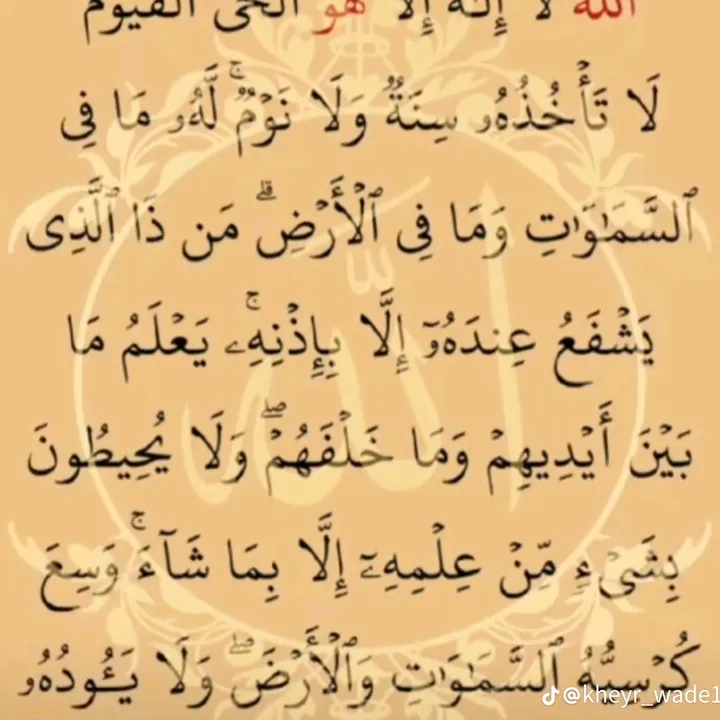 الله لَا إِلَٰهَ إِلَّا هُوَ الْحَىُّ الْقَيُّومُ
لَا تَأْخُذُهُۥ سِنَةٌ وَلَا نَوْمٌ ۚ لَّهُۥ مَا فِى
ٱلسَّمَٰوَٰتِ وَمَا فِى ٱلْأَرْضِ ۗ مَن ذَا ٱلَّذِى
يَشْفَعُ عِندَهُۥٓ إِلَّا بِإِذْنِهِۦ ۚ يَعْلَمُ مَا
بَيْنَ أَيْدِيهِمْ وَمَا خَلْفَهُمْ ۖ وَلَا يُحِيطُونَ
بِشَىْءٍ مِّنْ عِلْمِهِۦٓ إِلَّا بِمَا شَآءَ ۚ وَسِعَ
كُرْسِيُّهُ ٱلسَّمَٰوَٰتِ وَٱلْأَرْضَ ۖ وَلَا يَـُٔودُهُۥ
الله
@kheyr_wade1